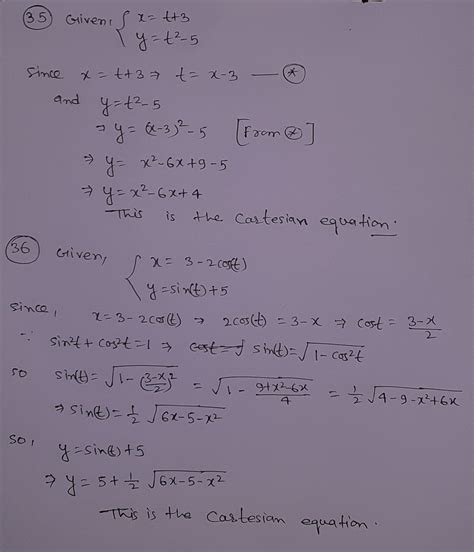 (35) Given, { x = t+3
y = t²-5
Since x = t+3 ⇒ t = x-3 —— (*)
and y = t²-5
⇒ y = (x-3)² - 5 [From (*)]
⇒ y = x²-6x+9-5
⇒ y = x²-6x+4
This is the Cartesian equation.
(36) Given, { x = 3-2cos(t)
y = sin(t)+5
Since, x = 3-2cos(t) ⇒ 2cos(t) = 3-x ⇒ cost = (3-x)/2
∵ sin²t + cos²t = 1 ⇒ sin(t) = √(1-cos²t)
so sin(t) = √(1-((3-x)/2)²) = √(1-(9+x²-6x)/4) = 1/2 √(4-9-x²+6x)
⇒ sin(t) = 1/2 √(6x-5-x²)
so, y = sin(t)+5
⇒ y = 5+1/2 √(6x-5-x²)
This is the Cartesian equation.